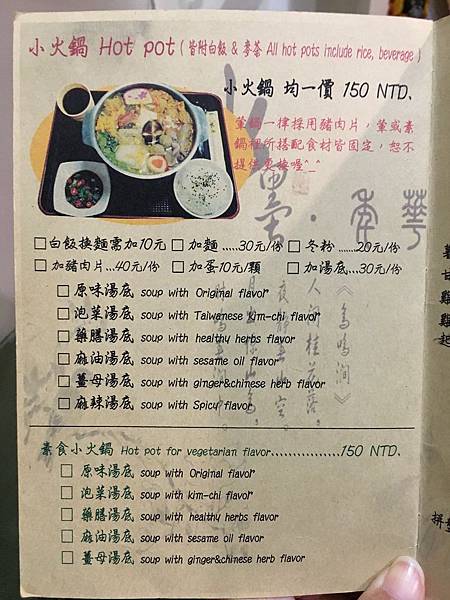 小火鍋 Hot pot ( 皆附白飯 & 麥茶 All hot pots include rice, beverage )
小火鍋 均一價 150 NTD.
葷鍋一律採用豬肉片，葷或素
鍋裡所搭配食材皆固定，恕不
提供更換喔^_^
□白飯換麵需加10元 □加麵.....30元/份 □冬粉.......20元/份
□加豬肉片...40元/份 □加蛋10元/顆 □加湯底...30元/份
□ 原味湯底 soup with Original flavor
□ 泡菜湯底 soup with Taiwanese kim-chi flavor
□ 藥膳湯底 soup with healthy herbs flavor
□ 麻油湯底 soup with sesame oil flavor
□ 薑母湯底 soup with ginger&chinese herb flavor
□ 麻辣湯底 soup with Spicy flavor
素食小火鍋 Hot pot for vegetarian flavor.................150 NTD.
□ 原味湯底 soup with Original flavor
□ 泡菜湯底 soup with kim-chi flavor
□ 藥膳湯底 soup with healthy herbs flavor
□ 麻油湯底 soup with sesame oil flavor
□ 薑母湯底 soup with ginger&chinese herb flavor
《鳥鳴澗》
人閒桂花落，
夜靜春山空。